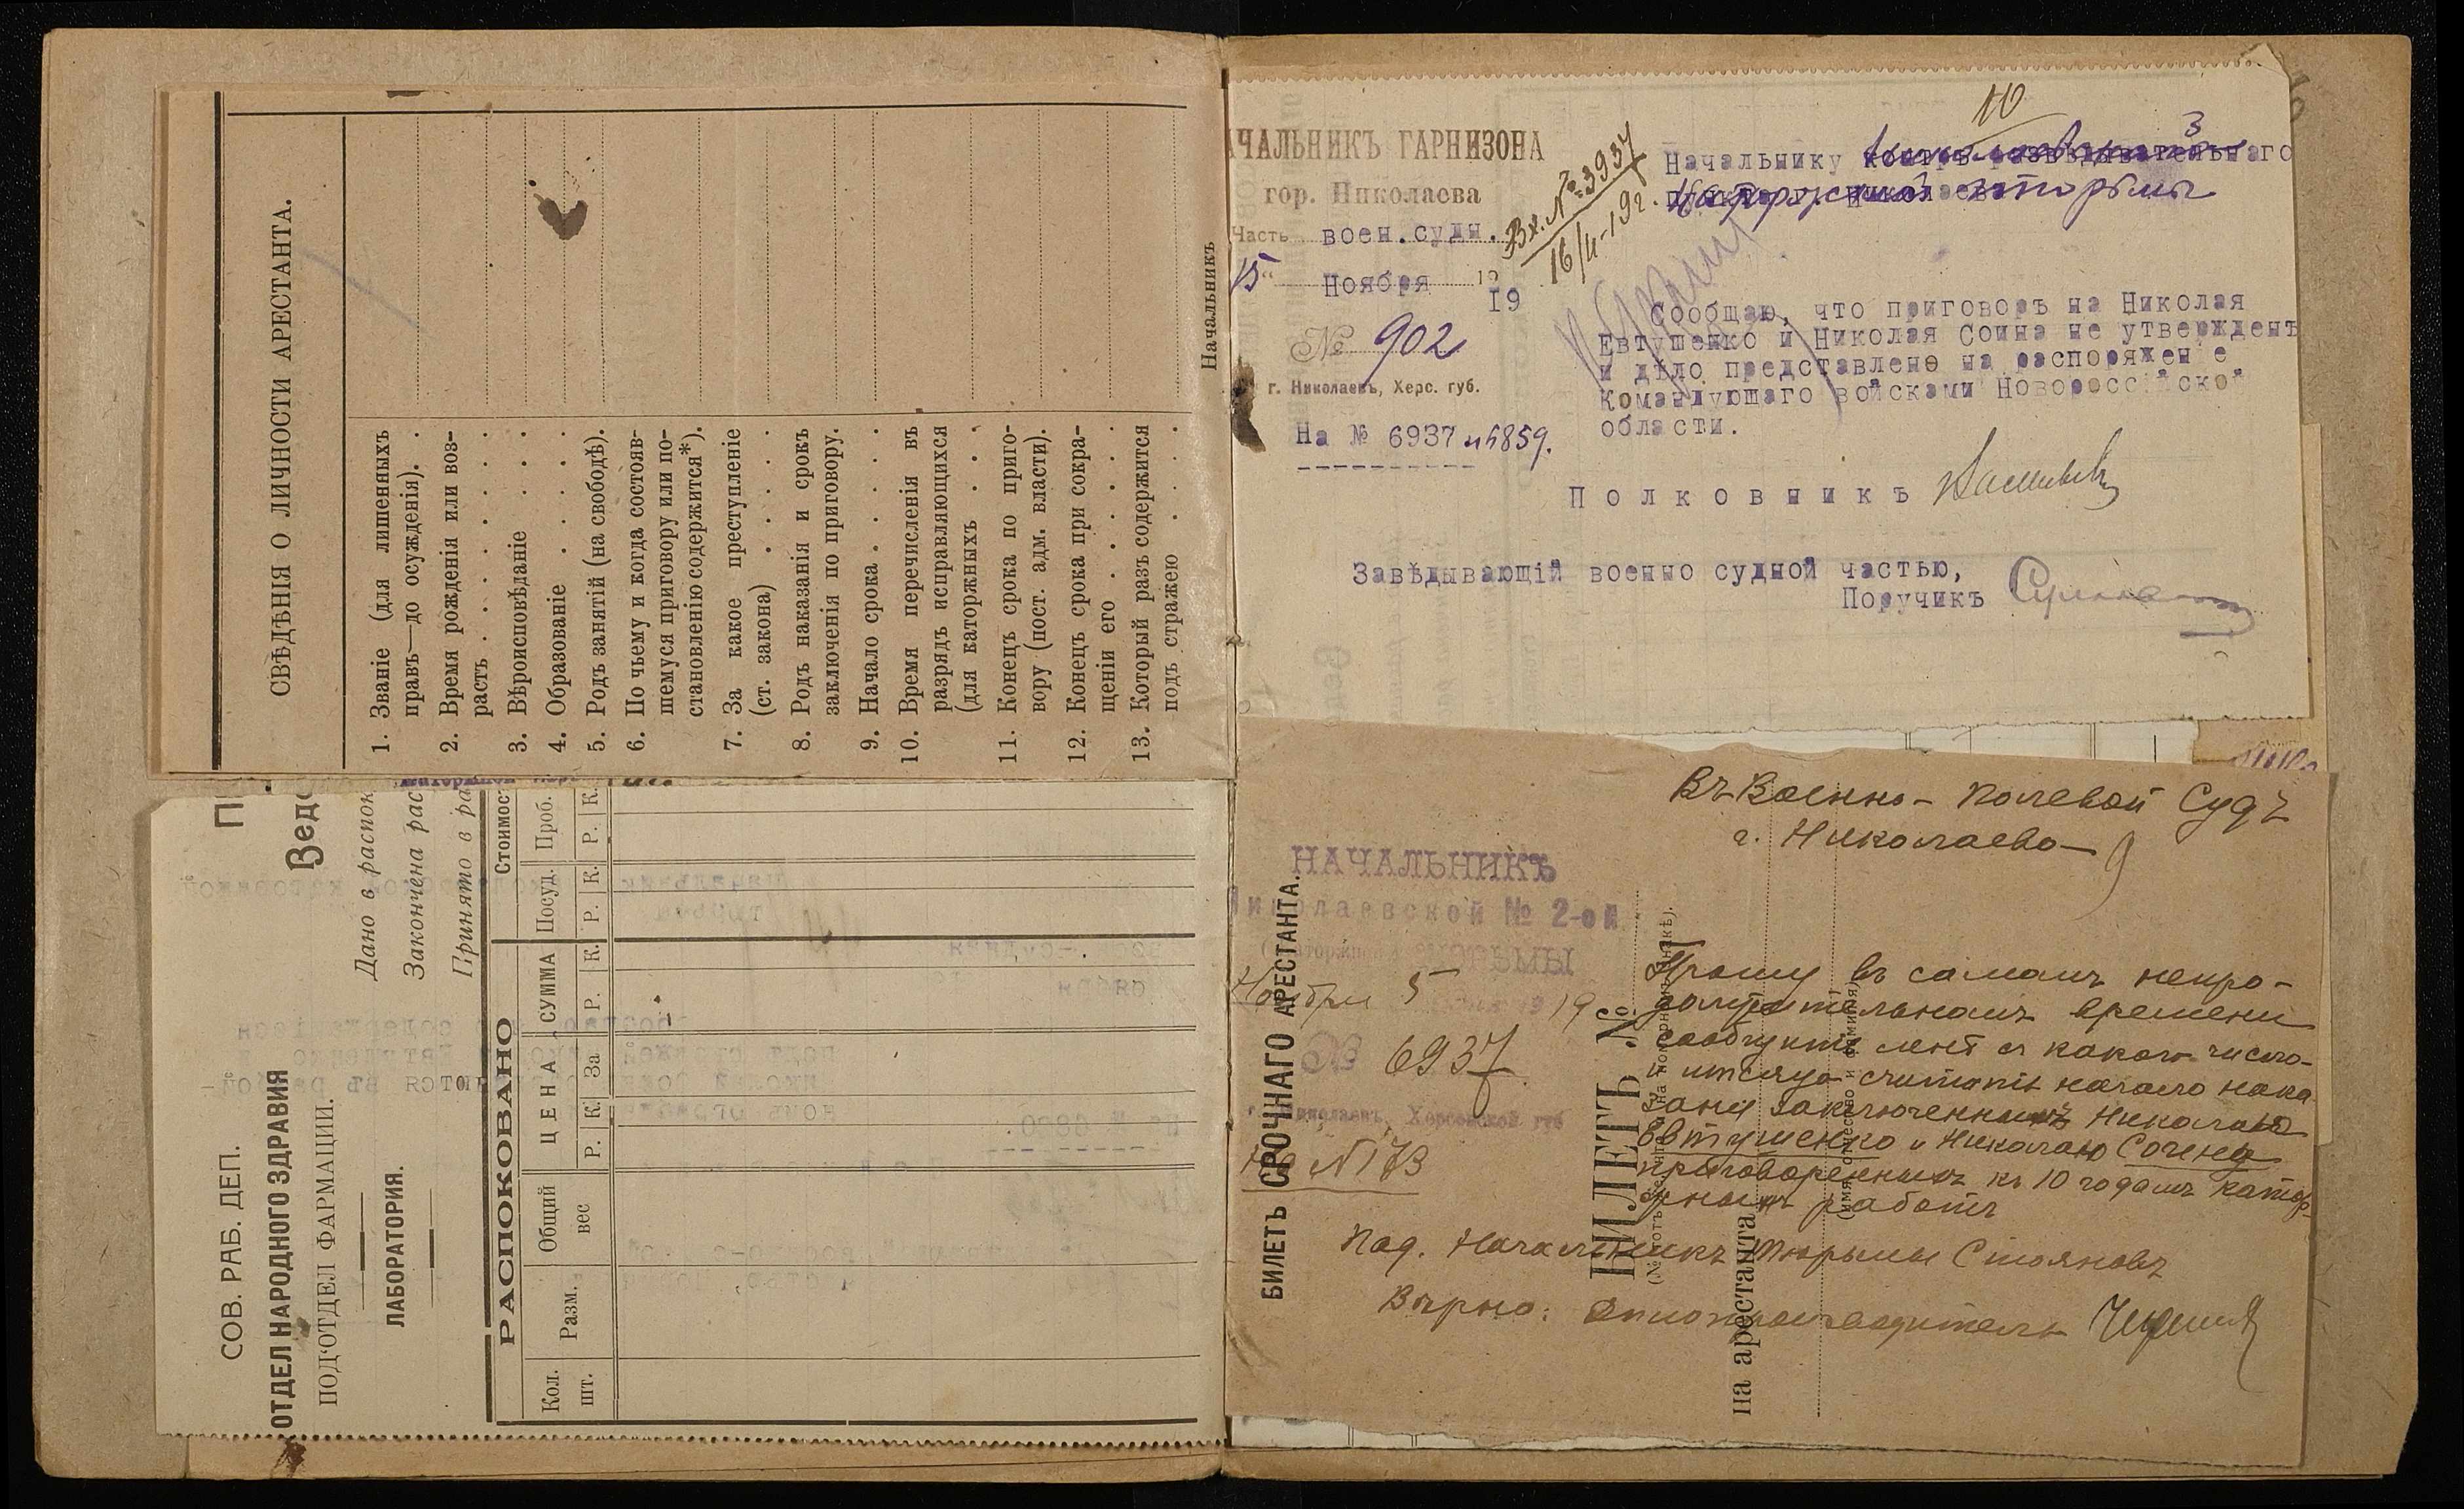 СВѢДѢНІЯ О ЛИЧНОСТИ АРЕСТАНТА.
1. Званіе (для лишенныхъ
правъ—до осужденія). .
2. Время рожденія или воз-
растъ . . . . . . .
3. Вѣроисповѣданіе . . .
4. Образованіе . . . .
5. Родъ занятій (на свободѣ).
6. По чьему и когда состояв-
шемуся приговору или по-
становленію содержится*).
7. За какое преступленіе
(ст. закона) . . . . .
8. Родъ наказанія и срокъ
заключенія по приговору.
9. Начало срока . . . . .
10. Время перечисленія въ
разрядъ исправляющихся
(для каторжныхъ . . .
11. Конецъ срока по приго-
вору (пост. адм. власти).
12. Конецъ срока при сокра-
щеніи его . . . . . .
13. Который разъ содержится
подъ стражею . . . .
Начальникъ
СОВ. РАБ. ДЕП.
ОТДЕЛ НАРОДНОГО ЗДРАВИЯ
ПОД'ОТДЕЛ ФАРМАЦИИ.
ЛАБОРАТОРИЯ.
Вед
Дано в распок
Закончена рас
Принято в ра
РАСПОКОВАНО
Стоимос
Кол. шт.
Разм.
Общий вес
ЦЕНА
За
СУММА
Посуд.
Проб.
Р. К. Р. К. Р. К. Р. К.
АЧАЛЬНИКЪ ГАРНИЗОНА
гор. Николаева
Часть воен.судн.
15 " Ноября 19 19
№ 902
г. Николаевъ, Херс. губ.
На № 6937 и 6859.
Вх. № 3937
16/11-19г.
10
3
Начальнику
каторжной тюрьмы
Сообщаю, что приговоръ на Николая
Евтушенко и Николая Соина не утвержденъ
и дѣло представлено на распоряжение
Командующаго войсками Новороссійской
области.
Полковникъ
Завѣдывающій военно судной частью,
Поручикъ
Въ Военно-Полевой Судъ
г. Николаева
9
НАЧАЛЬНИКЪ
Николаевской № 2-ой
(каторжной) ТЮРЬМЫ
Ноября 5 19
№ 6937
г. Николаевъ, Херсонской губ
На № 173
Прошу въ самомъ непро-
должительномъ времени
сообщить мнѣ съ какого числа
и мѣсяца считать начало нака
занія заключеннымъ Николаю
Евтушенко и Николаю Сочену
приговореннымъ къ 10 годамъ катор-
жныхъ работъ
Под. Начальникъ Тюрьмы Стояновъ
Вѣрно: Дѣлопроизводитель
БИЛЕТЪ СРОЧНАГО АРЕСТАНТА.
БИЛЕТЪ №
на арестанта